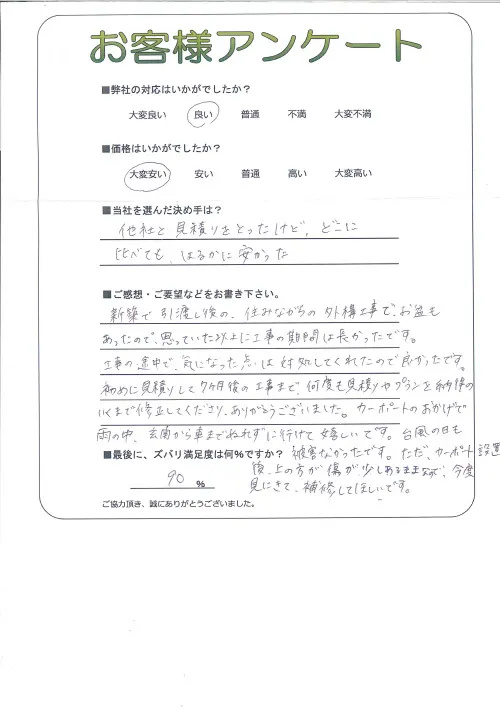 お客様アンケート
■弊社の対応はいかがでしたか？
大変良い 良い 普通 不満 大変不満
■価格はいかがでしたか？
大変安い 安い 普通 高い 大変高い
■当社を選んだ決め手は？
他社と見積りをとったけど、どこに
比べても、はるかに安かった
■ご感想・ご要望などをお書き下さい。
新築で引渡し後の、住みながらの外構工事で、お盆も
あったので、思っていた以上に工事の期間は長かったです。
工事の途中で、気になった点は対処してくれたので良かったです。
初めに見積りして7ヶ月後の工事まで、何度も見積りやプランを納得の
いくまで修正してくださり、ありがとうございました。カーポートのおかげで
雨の中、玄関から車までぬれずに行けて嬉しいです。台風の日も
■最後に、ズバリ満足度は何％ですか？ 被害なかったです。ただ、カーポート設置
後、上の方が傷が少しあるままなので、今度
90 ％ 見にきて、補修してほしいです。
ご協力頂き、誠にありがとうございました。